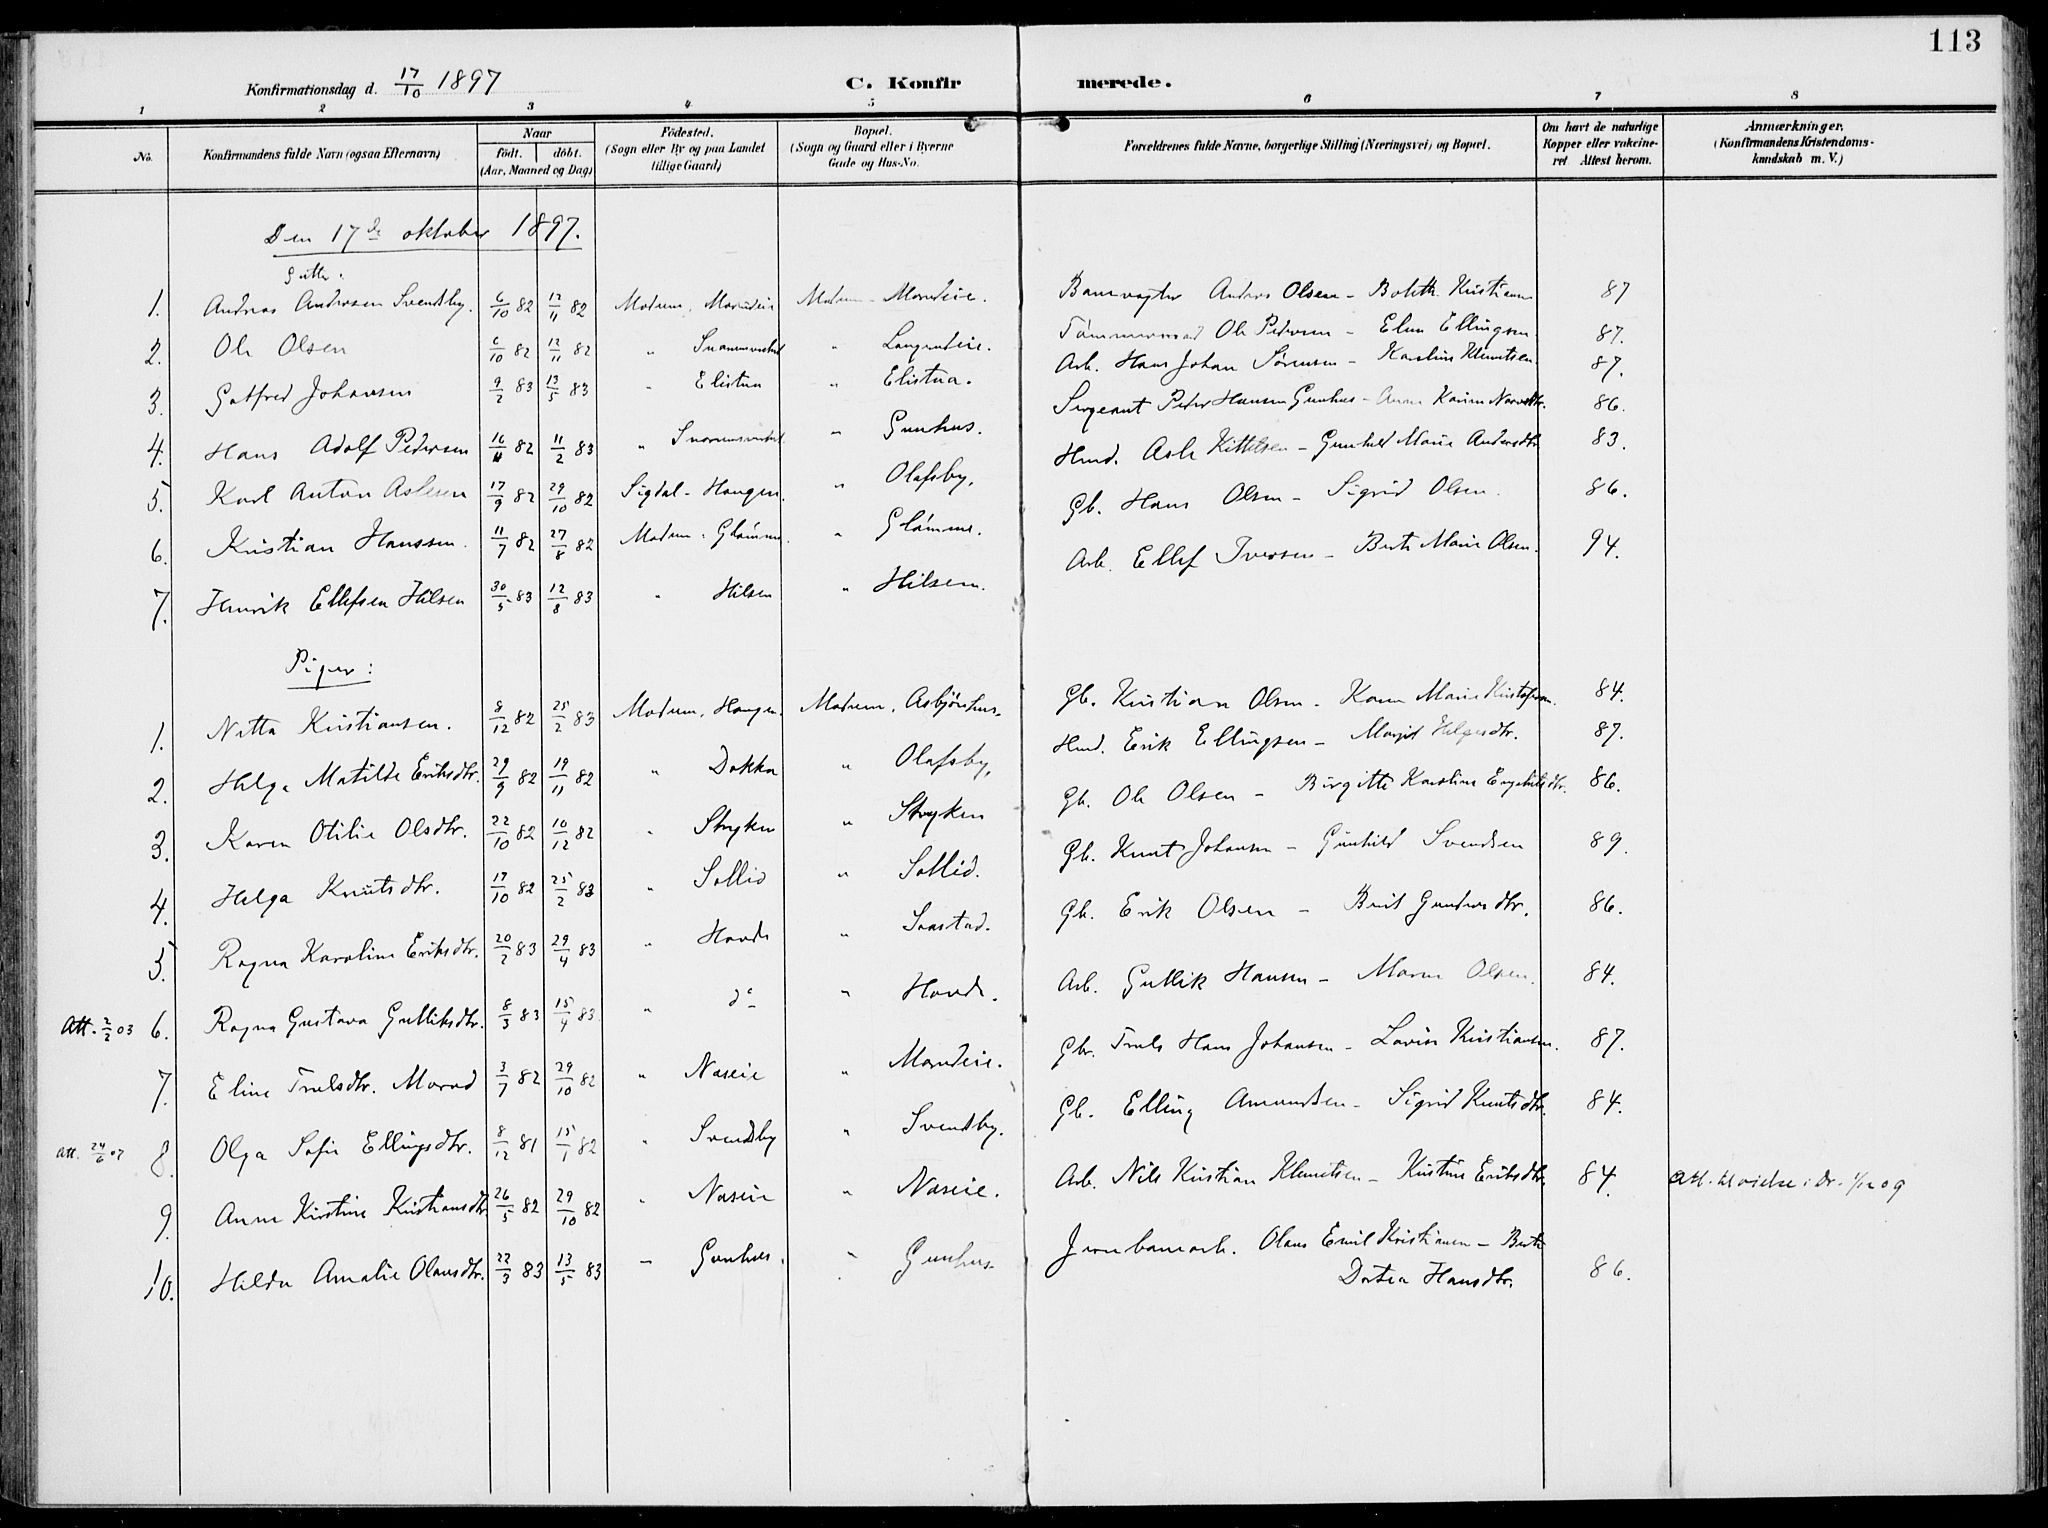 113
Konfirmationsdag d. 17/10 1897
C. Konfirmerede.
1 2 3 4 5 6 7 8
No. Konfirmandens fulde Navn (ogsaa Efternavn) Naar født. døbt. (Aar, Maaned og Dag) Fødested. (Sogn eller By og paa Landet tillige Gaard) Bopæl. (Sogn og Gaard eller i Byerne Gade og Hus-No. Forældrenes fulde Navne, borgerlige Stilling (Næringsvei) og Bopæl. Om havt de naturlige Kopper eller vakcineret Attest herom. Anmærkninger. (Konfirmandens Kristendomskundskab m. V.)
Den 17de oktober 1897.
Gutter.
1. Andreas Andersen Svendsby. 6/10 82 12/11 82 Modum, Moendeie Modum - Moendeie. Banevogter Anders Olsen - Boleth Kristiansen 87
2. Ole Olsen 6/10 82 12/11 82 " Snarumsverket " Langendeie. Tømmermand Ole Pedersen - Elen Ellingsen 87.
3. Gotfred Johansen 9/2 83 13/5 83 " Elistua " Elistua. Arb. Hans Johan Sørensen - Karoline Klemetsen 87.
4. Hans Adolf Pedersen 16/11 82 11/2 83 " Snarumsverket " Gunhus. Sergeant Peder Hansen Gunhus - Anne Karine 86.
5. Karl Anton Aslesen 17/9 82 29/10 82 Sigdal - Haugen. " Olafsby. Hmd. Asle Kittelsen - Gunhild Marie Andersdtr. 83.
6. Kristian Hanssen. 11/7 82 27/8 82 Modum - Glømme. " Glømme. Gb. Hans Olsen - Sigrid Olsen. 86.
7. Henrik Ellefsen Hilsen 30/5 83 12/8 83 " Hilsen " Hilsen. Arb. Ellef Iversen - Berte Marie Olsen. 94.
Piger:
1. Netta Kristiansen. 8/12 82 25/2 83 Modum, Haugen. Modum, Asbjørnhus. Gb. Kristian Olsen - Karen Marie Kristofersen. 84.
2. Helga Matilde Eriksdtr. 29/9 82 19/11 82 " Dokka " Olafsby. Hmd. Erik Ellingsen - Margit Helgesdtr. 87.
3. Karen Otilie Olsdtr. 22/10 82 10/12 82 " Stryken " Stryken Gb. Ole Olsen - Birgitte Karoline Engebretsdtr. 86.
4. Helga Knutsdtr. 17/10 82 25/2 83 " Sollid " Sollid. Gb. Knut Johansen - Gunhild Svendsen 89.
5. Ragna Karoline Eriksdtr. 20/2 83 29/4 83 " Hovde " Saastad. Gb. Erik Olsen - Berit Gundersdtr. 86.
Att. 2/2 03 6. Ragna Gustava Gulliksdtr. 8/3 83 15/4 83 " do " Hovde. Arb. Gullik Hansen - Maren Olsen. 84.
7. Eline Trulsdtr. Moend 3/7 82 29/10 82 " Naseie " Moendeie. Gbr. Truls Hans Johansen - Lovise Kristiansen. 87.
Att. 24/6 07 8. Olga Sofie Ellingsdtr. 8/12 81 15/1 82 " Svendsby " Svendsby. Gb. Elling Amundsen - Sigrid Knutsdtr. 84.
9. Anne Kirstine Kristiansdtr. 26/5 82 29/10 82 " Naseie " Naseie. Arb. Nils Kristian Klemetsen - Kristine Eriksdtr. 84. Att. til vielse i Dr. 1/12 09
10. Hilda Amalie Olausdtr. 22/3 83 13/5 83 " Gunhus. " Gunhus. Jernbanearb. Olaus Emil Kristiansen - Berte
Dortea Hansdtr. 86.